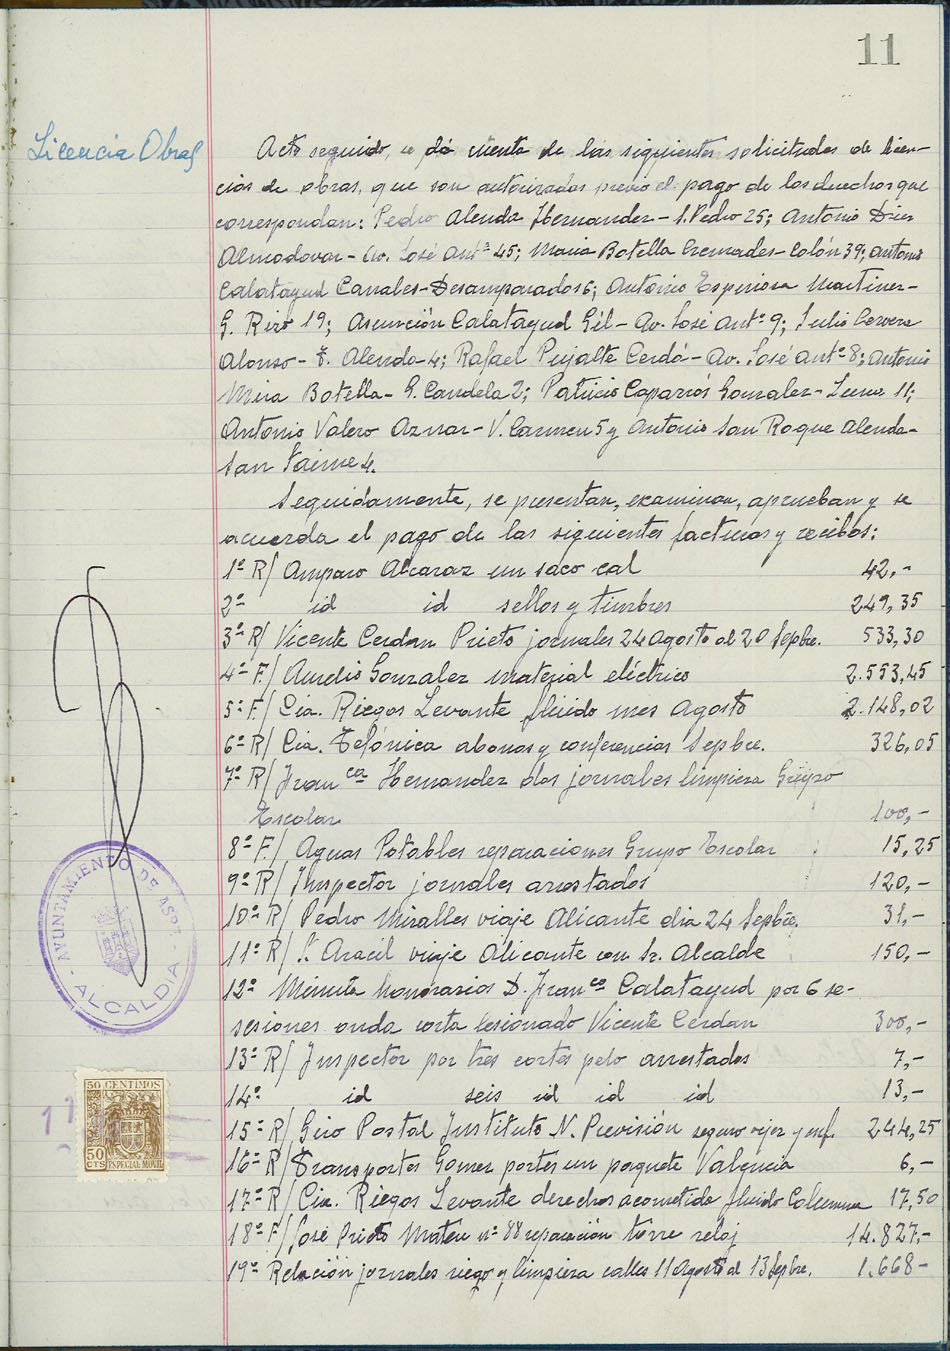 11
Licencia Obras
Acto seguido, se dá cuenta de las siguientes solicitudes de licen-
cias de obras, que son autorizadas previo el pago de los derechos que
correspondan: Pedro Alenda Hernandez - S. Pedro 25; Antonio Diez
Almodovar - Av. José Antº 45; Maria Botella Cremades - Colón 39; Antonio
Calatayud Canales - Desamparados 6; Antonio Espinosa Martinez -
G. Rizo 19; Asunción Calatayud Gil - Av. José Antº 9; Julio Cervera
Alonso - T. Alenda 4; Rafael Pujalte Cerdá - Av. José Antº 8; Antonio
Mira Botella - G. Candela 2; Patricio Caparrós Gonzalez - Luna 11;
Antonio Valero Aznar - V. Carmen 5 y Antonio San Roque Alenda -
San Jaime 4.
Seguidamente, se presentan, examinan, aprueban y se
acuerda el pago de las siguientes facturas y recibos:
1º R/ Amparo Alcaraz un saco cal 42,-
2º id id sellos y timbres 249,35
3º R/ Vicente Cerdan Prieto jornales 24 Agosto al 20 Sepbre. 533,30
4º F/ Aurelio Gonzalez material eléctrico 2.553,45
5º F/ Cia. Riegos Levante flúido mes Agosto 2.148,02
6º R/ Cia. Telfónica abonos y conferencias Sepbre. 326,05
7º R/ Francca Hernandez dos jornales limpieza Grupo
Escolar 100,-
8º F/ Aguas Potables reparaciones Grupo Escolar 15,25
9º R/ Inspector jornales arrestados 120,-
10º R/ Pedro Miralles viaje Alicante dia 24 Sepbre. 31,-
11º R/ S. Aracil viaje Alicante con Sr. Alcalde 150,-
12º Minuta honorarios D. Franco Calatayud por 6 se-
sesiones onda corta lesionado Vicente Cerdan 300,-
13º R/ Inspector por tres cortes pelo arrestados 7,-
14º id seis id id id 13,-
15º R/ Giro Postal Instituto N. Previsión seguro vejez y enf. 244,25
16º R/ Transportes Gomez portes un paquete Valencia 6,-
17º R/ Cia. Riegos Levante derechos acometida flúido Columna 17,50
18º F/ José Prieto Mateu nº 88 reparación torre reloj 14.827,-
19º Relación jornales riego y limpieza calles 11 Agosto al 13 Sepbre. 1.668-
AYUNTAMIENTO DE ASPE
ALCALDIA
50 CENTIMOS
50
CTS
ESPECIAL MOVIL